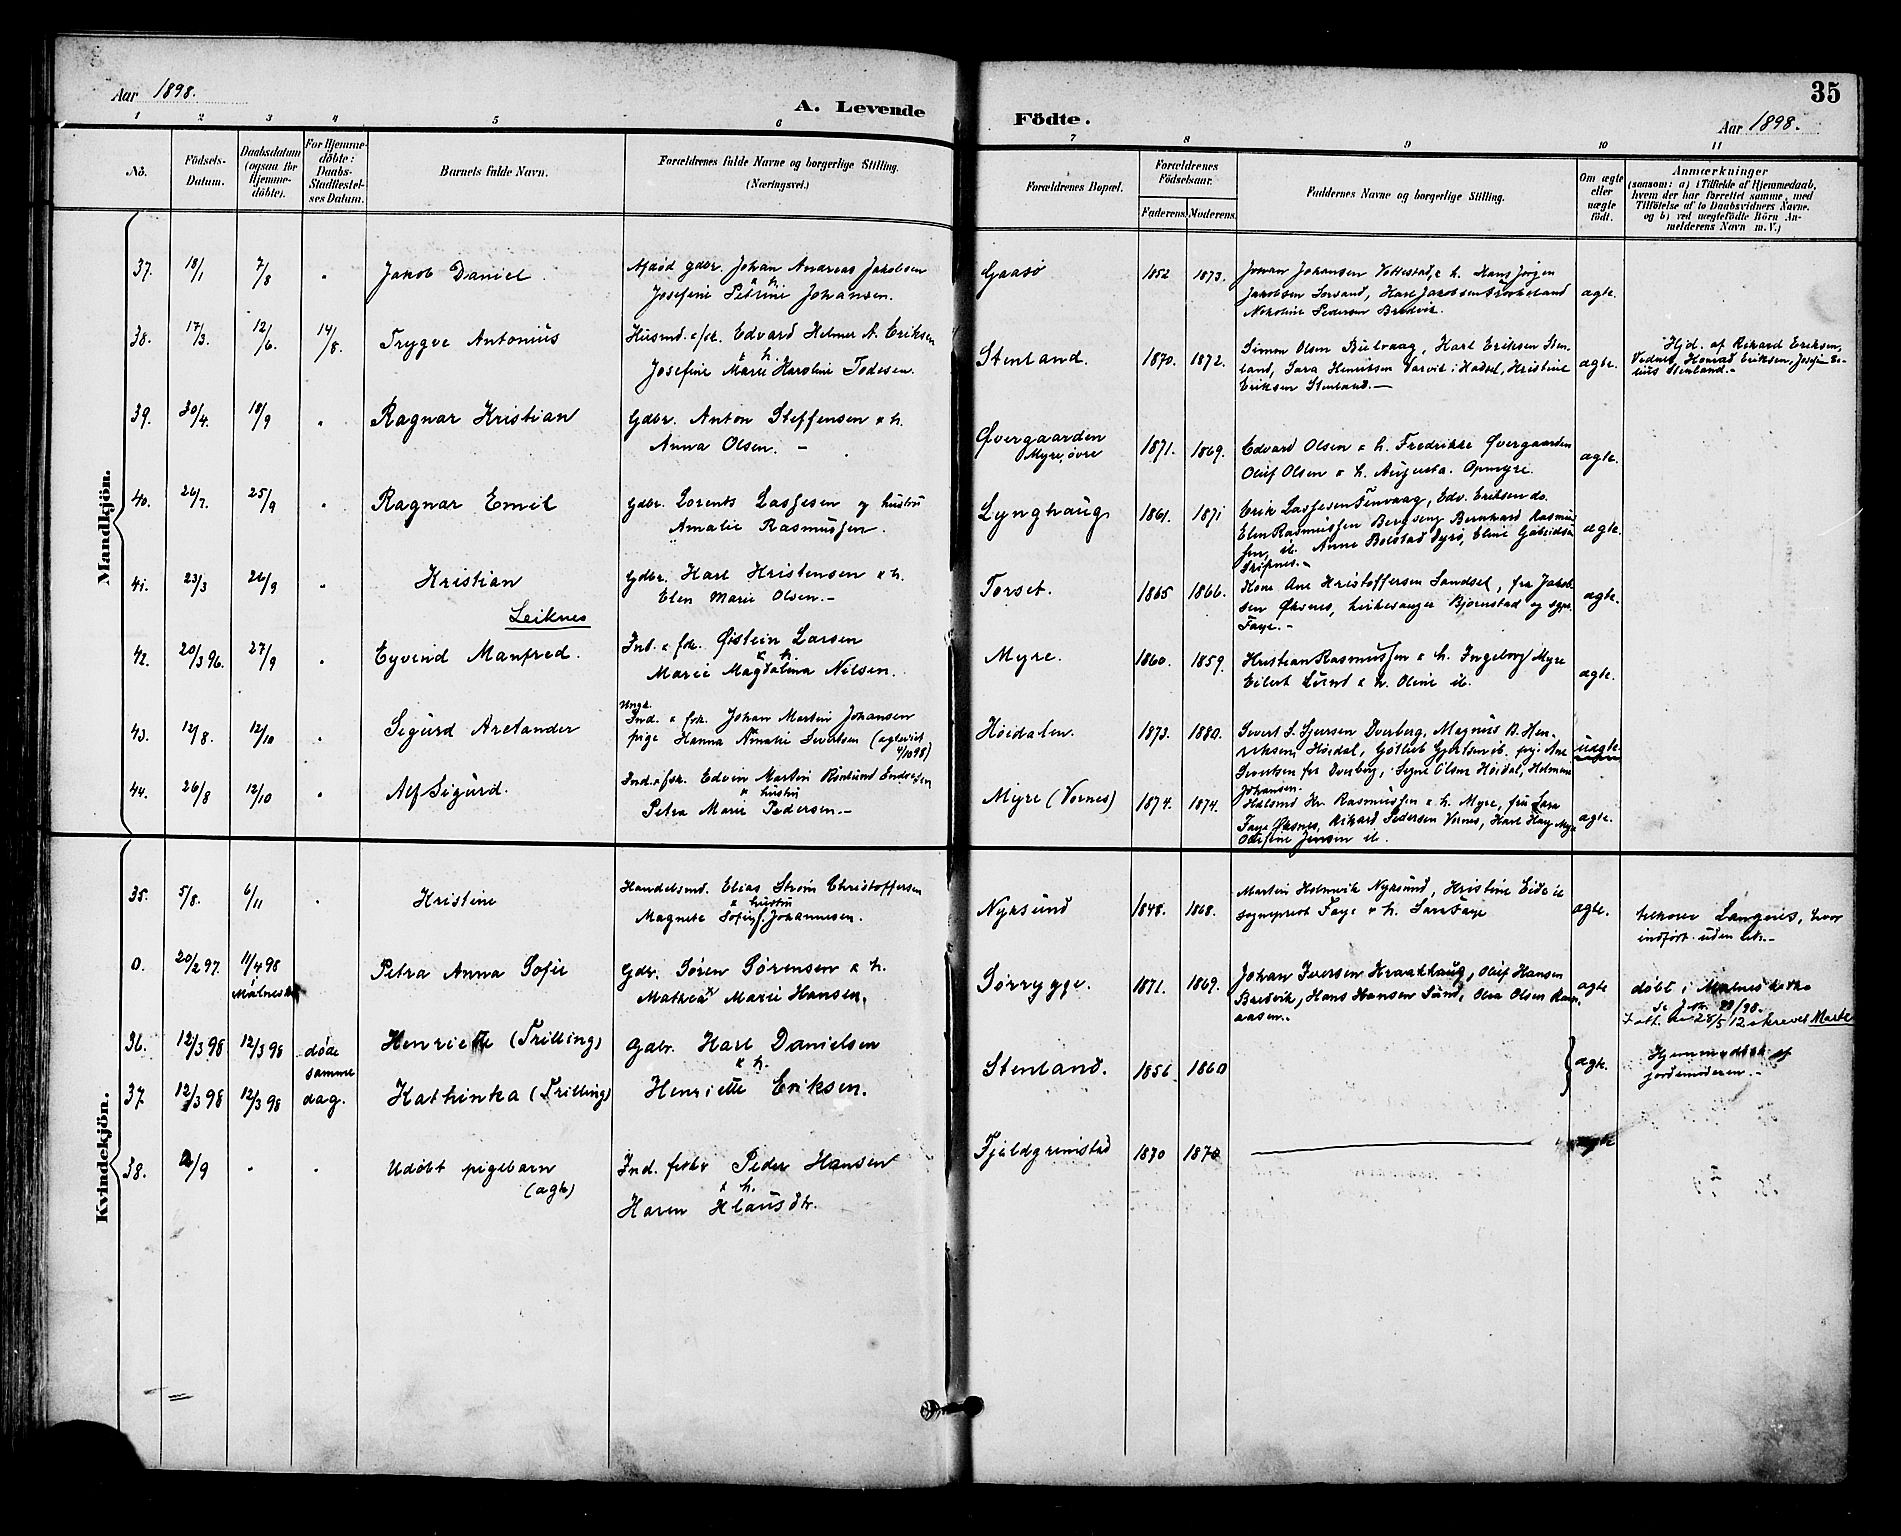 Aar 1898.
A. Levende
1 2 3 4 5 6
No.
Födsels-Datum.
Daabsdatum (ogsaa for Hjemmedöbte).
For Hjemmedöbte: Daabs-Stadfæstelses Datum.
Barnets fulde Navn.
Forældrenes fulde Navne og borgerlige Stilling.
(Næringsvei.)
Mandkjön.
37. 18/1 7/8 " Jakob Daniel. gdbr. Johan Andreas Jakobsen
& h.
Josefine Petrine Johansen.
38. 17/3. 12/6. 14/8. Trygve Antonius Husmd. Edvard Helmer A. Eriksen
& h.
Josefine Marie Karoline Todesen.
39. 30/4. 18/9 " Ragnar Kristian Gdbr. Anton Steffensen & h.
Anna Olsen. –
40. 26/7. 25/9 " Ragnar Emil Gdbr. Lorents Lassesen og hustru
Amalie Rasmussen.
41. 23/3 26/9 " Kristian Gdbr. Karl Kristensen & h.
Leiknes
Elen Marie Olsen. –
42. 20/3 96. 27/9 " Eyvind Manfred. Ind. & fsk. Øistein Larsen
& h.
Marie Magdalena Nilsen.
43. 12/8. 12/10 " Sigurd Aretander Ungk. Ind. & fsk. Johan Martin Johansen
pige Hanna Amalie Sivertsen (egteviet 4/10 98)
44. 26/8 12/10 " Alf Sigurd. Ind. & fsk. Edvin Martin Enoksen
& hustru
Petra Marie Pedersen. –
Kvindekjön.
35. 5/8. 6/11 " Kristine Handelsmd. Elias Strøm Christoffersen
& hustru
Magnete Sofie Johannesen.
0. 20/2 97. 11/4 98 Petra Anna Sofie Gdr. Sören Sörensen & h.
Malnes
Mathea Marie Hansen.
36. 12/3 98 12/3 98 døde Henriette (Trilling) Gdbr. Karl Danielsen
samme
& h.
37. 12/3 98 12/3 98 dag. Kathinka (Trilling) Henriette Eriksen.
38. 2/9 " " Udöbt pigebarn Ind. fisker Peder Hansen
(ægte)
& h.
Karen Klausdtr.
Födte.
35
Aar 1898.
7 8 9 10 11
Forældrenes Bopæl.
Forældrenes Födselsaar.
Faderens. Moderens.
Faddernes Navne og borgerlige Stilling.
Om ægte eller uægte födt.
Anmærkninger
(saasom: a) i Tilfælde af Hjemmedaab, hvem der har forrettet samme, med Tilföielse af to Daabsvidners Navne. og b) ved uegtefödte Börn Anmelderens Navn m. V.)
Gaasø 1852 1873. Johan Johansen Vottestad, & h. Hans Jørgen
Jakobsen Sorsand, Karl Jakobsen
Nikoline Pedersen Bredvik. ægte.
Stenland. 1870. 1872. Simon Olsen Bulvaag, Karl Eriksen Stenland,
Sara Henriksen i Hadsel, Kristine
Eriksen Stenland. – ægte.
Hjd. af Rikard Eriksen,
Vidner, Konrad Eriksen,
Stenland. –
Øvergaarden
Myre, øvre 1871. 1869. Edvard Olsen & h. Fredrikke Øvergaarden
Oluf Olsen & h. Augusta. Opmyre. ægte.
Lynghaug 1861. 1871 Erik Lassesen Finvaag, Edv. Eriksen do.
Elen Rasmussen Bergseng Bernhard Rasmussen,
ib. Anne Bolstad Dyrø, Eline
ægte.
Torset. 1865 1866. Kone Ane Kristoffersen Sandset, fru Jakobsen
Øksnes, kirkesanger Bjørnstad og sgpr.
Faye. – ægte.
Myre. 1860. 1859. Kristian Rasmussen & h. Ingeborg Myre
Eilert Lund & h. Oline ib. ægte.
Höidalen. 1873. 1880. Sivert S. Sjursen Dverberg, Magnus B. Henriksen,
Höidal, Gotlieb Gjertsen ib. pige Ane
Sivertsen fra Dverberg, Signe Olsen Höidal,
Johansen. uægte
Myre (Vornes) 1874. 1874. Husmd Kr. Rasmussen & h. Myre, fru Sara
Faye Øksnes, Rikard Pedersen Vornes, Karl
Jensen ib. ægte.
Nyksund 1848. 1868. Martin Holmvik Nyksund, Kristine Eide ib
sogneprest Faye & h. Sara Faye ægte.
tilhører Langenes, hvor
indført uden
Sörrygge. 1871. 1869. Johan Iversen Kraakhaug, Oluf Hansen
Bredvik, Hans Hansen Sund, Olea Olsen
ægte
døbt i Malnes kirke
se
28/5 12 skrevet Marte
Stenland. 1856 1860 ægte.
Hjemmedöbt af
jordmoderen. –
Fjeldgrimstad 1870 1870 ægte